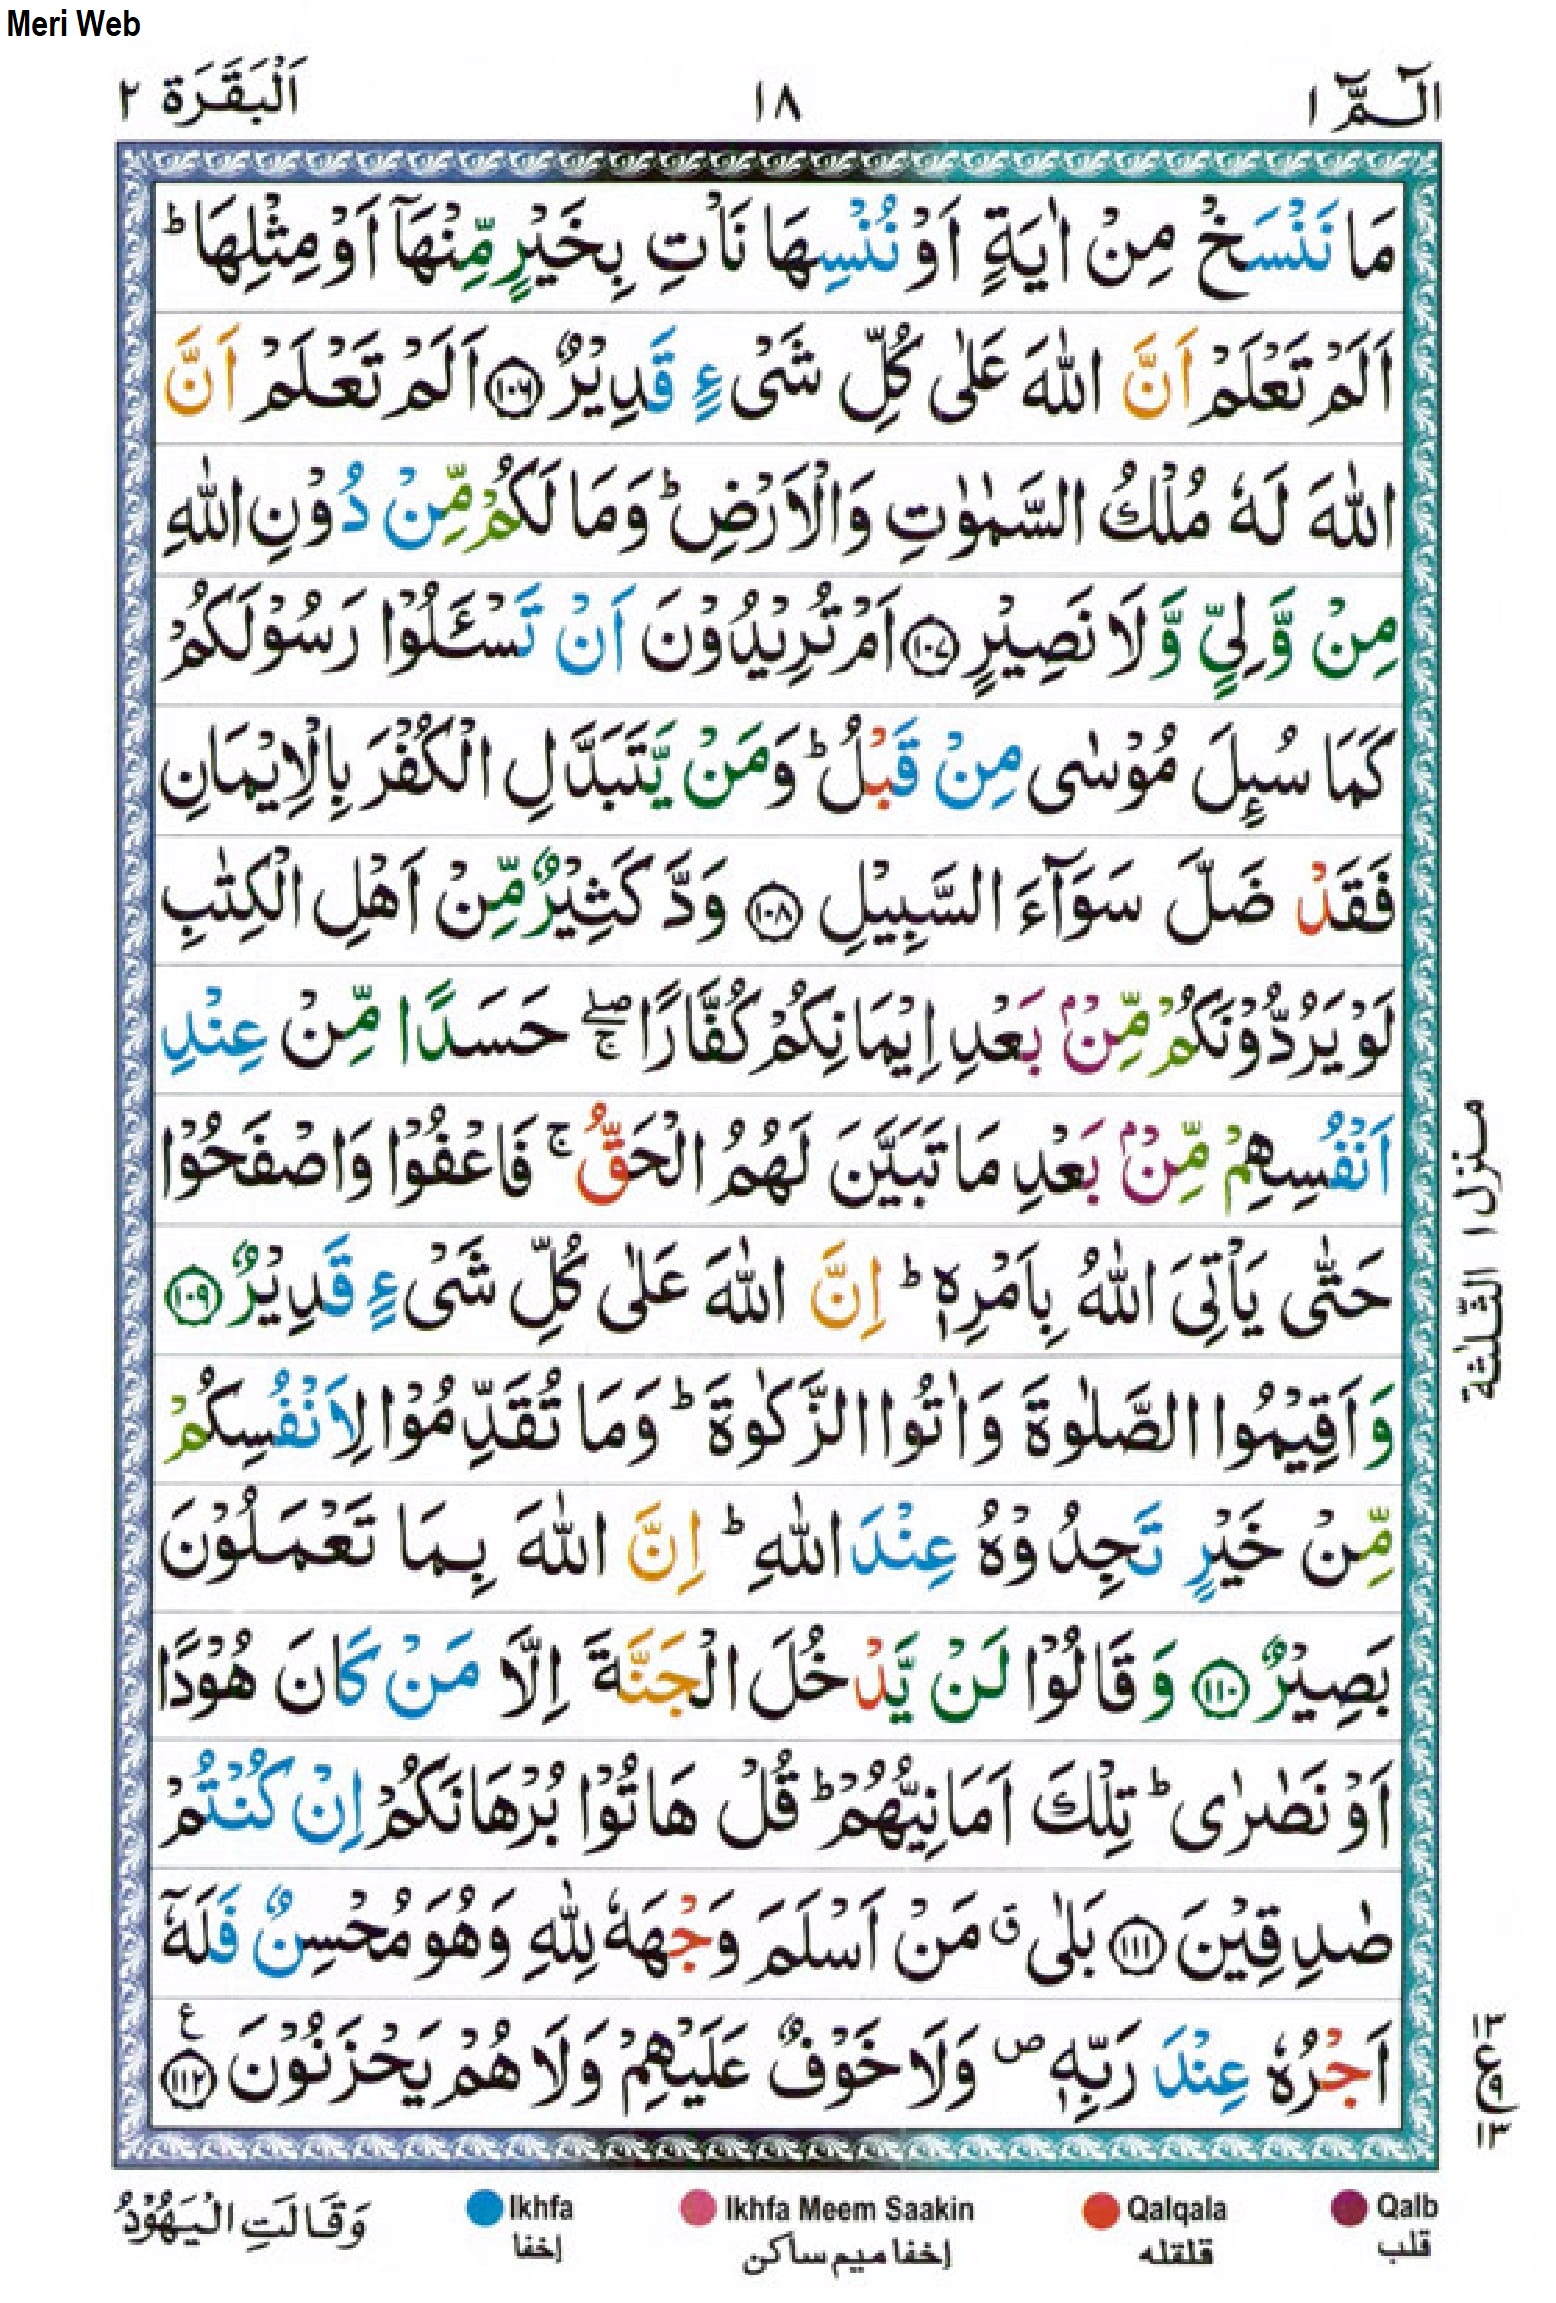 Meri Web
الٓمّٓ ١
١٨
اَلْبَقَرَة ٢
مَا نَنْسَخْ مِنْ اٰيَةٍ اَوْ نُنْسِهَا نَاْتِ بِخَيْرٍ مِّنْهَاۤ اَوْ مِثْلِهَا ؕ
اَلَمْ تَعْلَمْ اَنَّ اللّٰهَ عَلٰى كُلِّ شَیْءٍ قَدِيْرٌ ۝۱۰۶ اَلَمْ تَعْلَمْ اَنَّ
اللّٰهَ لَهٗ مُلْكُ السَّمٰوٰتِ وَالْاَرْضِ ؕ وَمَا لَكُمْ مِّنْ دُوْنِ اللّٰهِ
مِنْ وَّلِیٍّ وَّلَا نَصِيْرٍ ۝۱۰۷ اَمْ تُرِيْدُوْنَ اَنْ تَسْـَٔلُوْا رَسُوْلَكُمْ
كَمَا سُىِٕلَ مُوْسٰى مِنْ قَبْلُ ؕ وَمَنْ يَّتَبَدَّلِ الْكُفْرَ بِالْاِيْمَانِ
فَقَدْ ضَلَّ سَوَآءَ السَّبِيْلِ ۝۱۰۸ وَدَّ كَثِيْرٌ مِّنْ اَهْلِ الْكِتٰبِ
لَوْ يَرُدُّوْنَكُمْ مِّنْۢ بَعْدِ اِيْمَانِكُمْ كُفَّارًا ۖۚ حَسَدًا مِّنْ عِنْدِ
اَنْفُسِهِمْ مِّنْۢ بَعْدِ مَا تَبَيَّنَ لَهُمُ الْحَقُّ ۚ فَاعْفُوْا وَاصْفَحُوْا
حَتّٰى يَاْتِیَ اللّٰهُ بِاَمْرِهٖ ؕ اِنَّ اللّٰهَ عَلٰى كُلِّ شَیْءٍ قَدِيْرٌ ۝۱۰۹
وَاَقِيْمُوا الصَّلٰوةَ وَاٰتُوا الزَّكٰوةَ ؕ وَمَا تُقَدِّمُوْا لِاَنْفُسِكُمْ
مِّنْ خَيْرٍ تَجِدُوْهُ عِنْدَ اللّٰهِ ؕ اِنَّ اللّٰهَ بِمَا تَعْمَلُوْنَ
بَصِيْرٌ ۝۱۱۰ وَقَالُوْا لَنْ يَّدْخُلَ الْجَنَّةَ اِلَّا مَنْ كَانَ هُوْدًا
اَوْ نَصٰرٰى ؕ تِلْكَ اَمَانِيُّهُمْ ؕ قُلْ هَاتُوْا بُرْهَانَكُمْ اِنْ كُنْتُمْ
صٰدِقِيْنَ ۝۱۱۱ بَلٰى ۗ مَنْ اَسْلَمَ وَجْهَهٗ لِلّٰهِ وَهُوَ مُحْسِنٌ فَلَهٗۤ
اَجْرُهٗ عِنْدَ رَبِّهٖ ۪ وَلَا خَوْفٌ عَلَيْهِمْ وَلَا هُمْ يَحْزَنُوْنَ ۝۱۱۲ ع
منزل ١ الثّلٰثة
١٣
ع ٩
١٣
Qalb
قلب
Qalqala
قلقله
Ikhfa Meem Saakin
إخفا ميم ساكن
Ikhfa
إخفا
وَقَالَتِ الْيَهُوْدُ